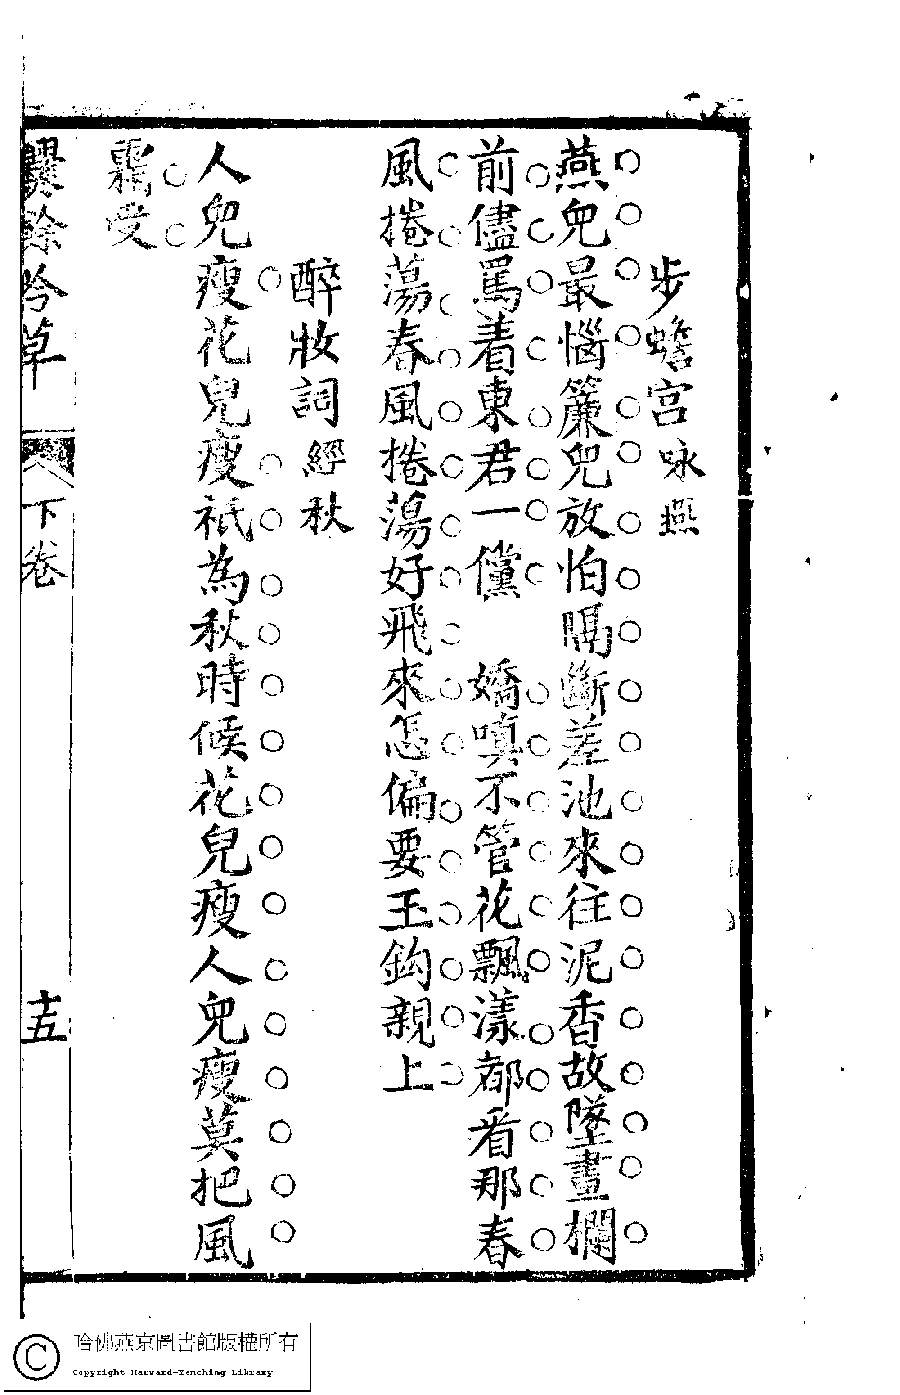 步蟾宮咏燕
燕兒最惱簾兒放怕隔斷差池來往泥香故墜畫欄
前儘罵着東君一儻　嬌嗔不管花飄漾都看那春
風捲蕩春風捲蕩好飛來怎偏要玉鈎親上
醉妝詞經秋
人兒瘦花兒瘦祇為秋時候花兒瘦人兒瘦莫把風
霜受
爨餘吟草
下卷
十五
哈佛燕京圖書館版權所有
Copyright Harvard-Yenching Library